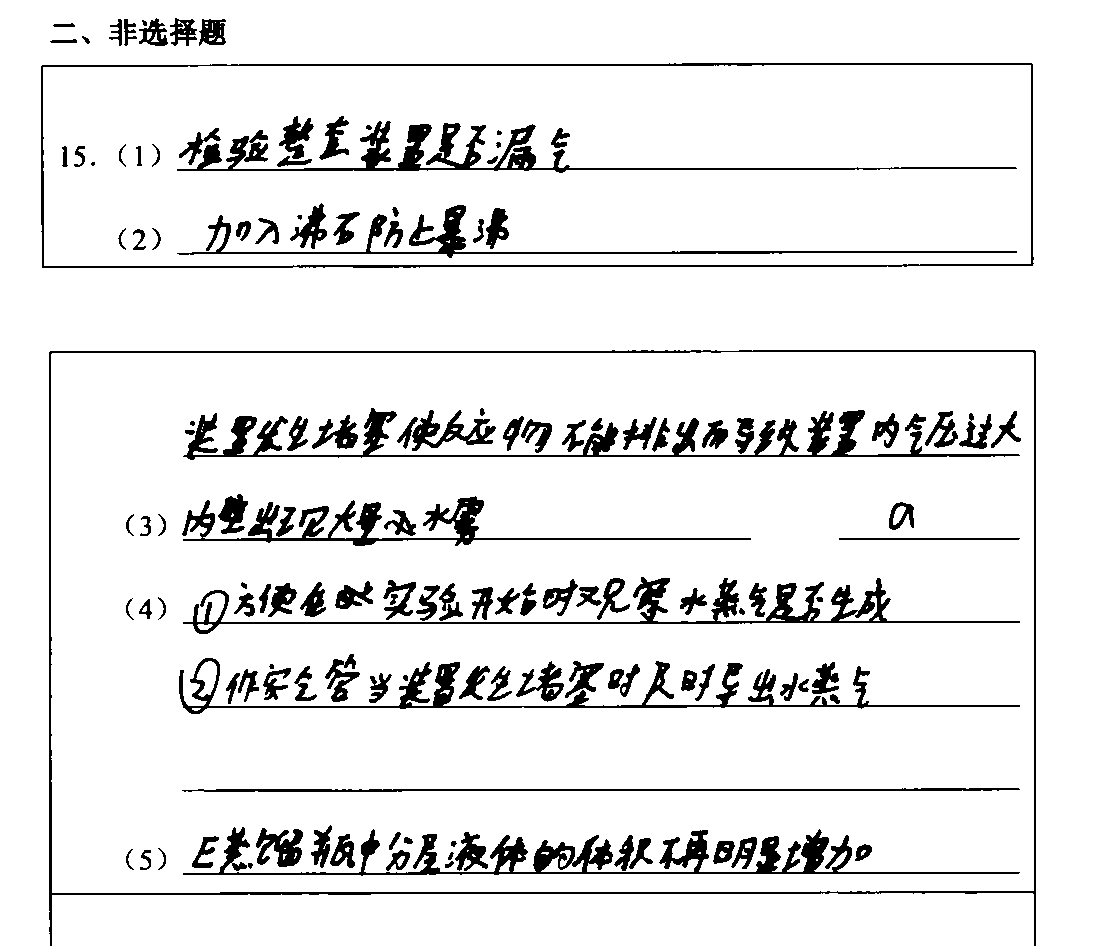 二、非选择题
15.（1）检验整套装置是否漏气
（2）加入沸石防止暴沸
装置发生堵塞使反应物不能排出而导致装置内气压过大
（3）内壁出现大量水雾 a
（4）①方便在实验开始时观察水蒸气是否生成
②作安全管当装置发生堵塞时及时导出水蒸气
（5）E蒸馏瓶中分层液体的体积不再明显增加